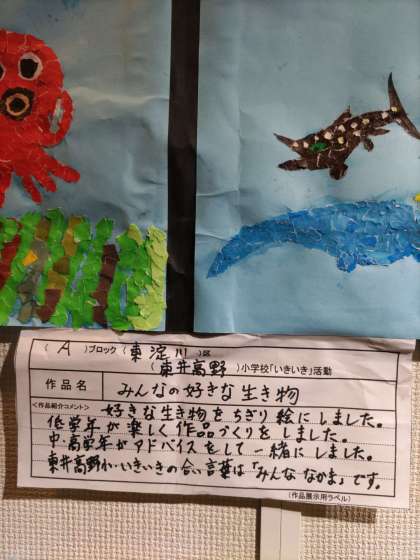 （ A ）ブロック（ 東淀川 ）区
（ 東井高野 ）小学校「いきいき」活動
作品名 みんなの好きな生き物
＜作品紹介コメント＞ 好きな生き物をちぎり絵にしました。
低学年が楽しく作品づくりをしました。
中・高学年がアドバイスをして一緒にしました。
東井高野小・いきいきの合い言葉は「みんななかま」です。
（作品展示用ラベル）